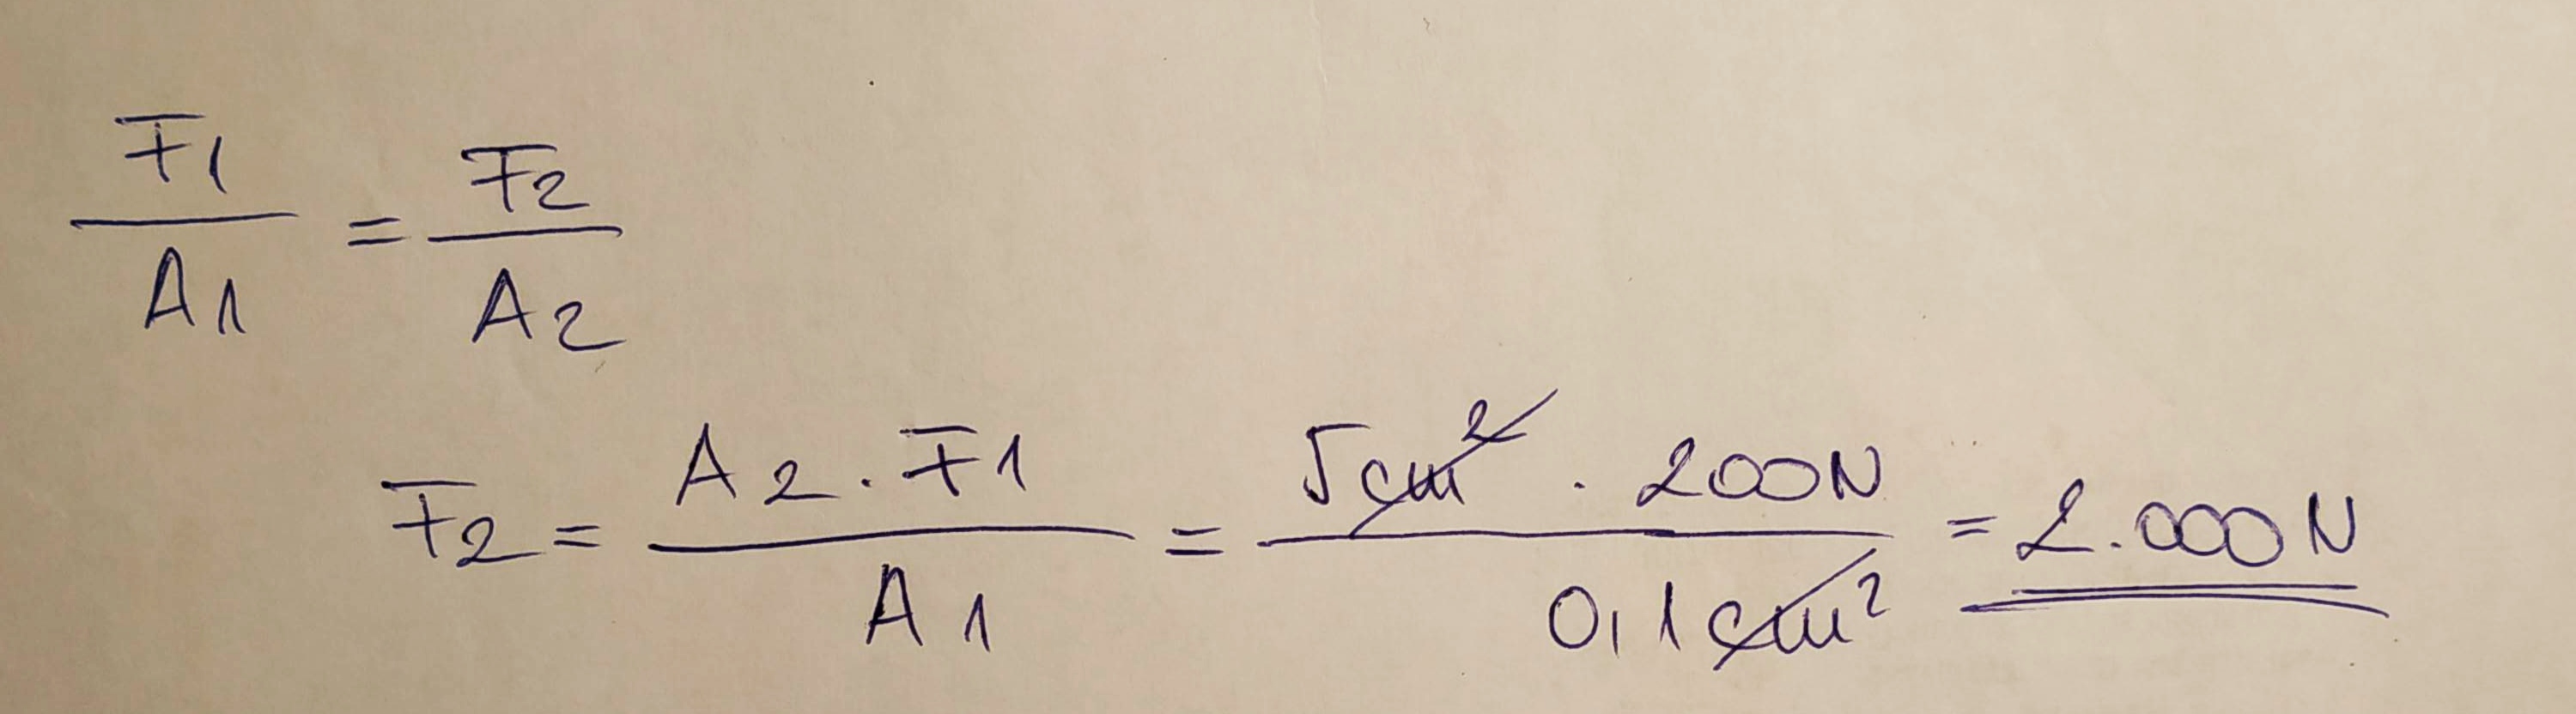 F1/A1 = F2/A2
F2 = A2 · F1 / A1 = 5cm² · 200N / 0,1cm² = 2.000N